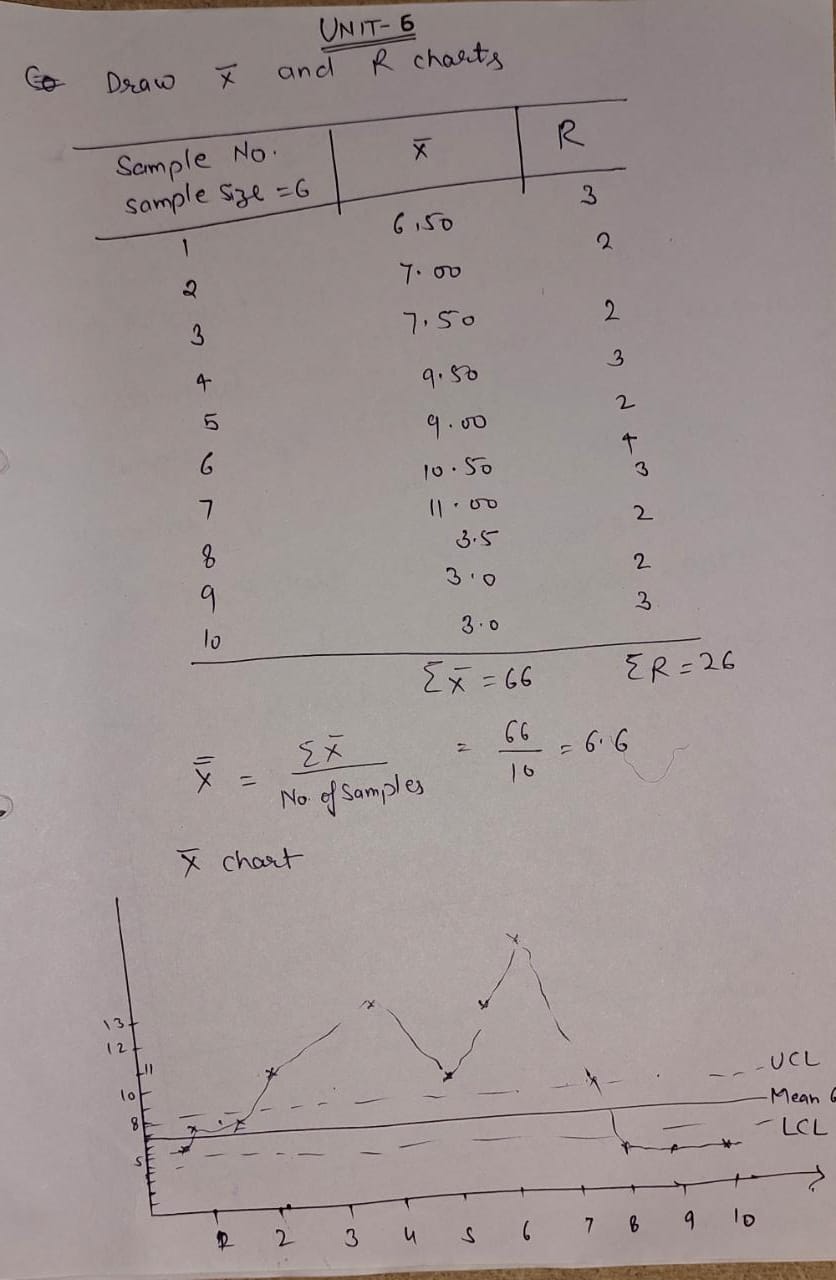 UNIT-6
Draw x̄ and R charts
Sample No. x̄ R
sample size =6
1 6.50 3
2 7.00 2
3 7.50 2
4 9.50 3
5 9.00 2
6 10.50 4
7 11.00 3
8 3.5 2
9 3.0 2
10 3.0 3
Σx̄ = 66 ΣR = 26
x̿ = Σx̄ / No. of Samples = 66 / 10 = 6.6
x̄ chart
13
12
11
10
8
5
UCL
Mean
LCL
2 3 4 5 6 7 8 9 10